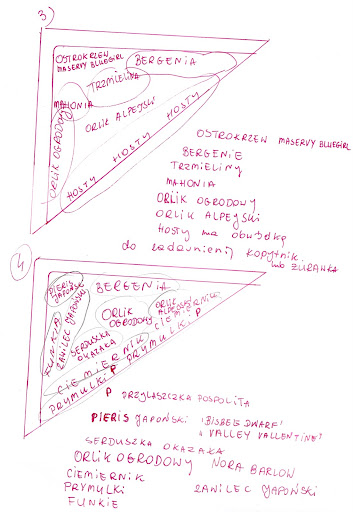 3)
OSTROKRZEW
MASERVY BLUEGIRL
BERGENIA
TRZMIELINA
MAHONIA
ORLIK ALPEJSKI
ORLIK OGRODOWY
HOSTY HOSTY HOSTY
OSTROKRZEW MASERVY BLUEGIRL
BERGENIE
TRZMIELINY
MAHONIA
ORLIK OGRODOWY
ORLIK ALPEJSKI
HOSTY na obwódkę
do zadarnienia kopytnik
lub ŻURAWKA
4)
PIERIS
JAPOŃSKI
BERGENIA
FUNKIA
ZAWILEC JAPOŃSKI
SERDUSZKA
OKAZAŁA
ORLIK
OGRODOWY
ORLIK
ALPEJSKI
CIEMIERNIK
CIEMIERNIK
PRYMULKI P PRYMULKI P
P PRZYLASZCZKA POSPOLITA
PIERIS JAPOŃSKI 'BISBEE DWARF'
'VALLEY VALLENTINE'
SERDUSZKA OKAZAŁA
ORLIK OGRODOWY NORA BARLOW
CIEMIERNIK
PRYMULKI ZAWILEC JAPOŃSKI
FUNKIE